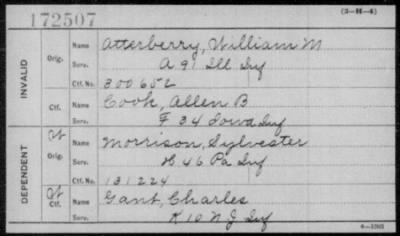 172507 (3-H-4)
INVALID
Orig. Name Atterberry, William M
Serv. A 91 Ill Inf
Ctf. No. 300652
Ctf. Name Cook, Allen B
Serv. F 34 Iowa Inf
DEPENDENT
Orig. Name Morrison, Sylvester
Serv. H 46 Pa Inf
Ctf. No. 131224
Ctf. Name Gant, Charles
Serv. K 10 N J Inf